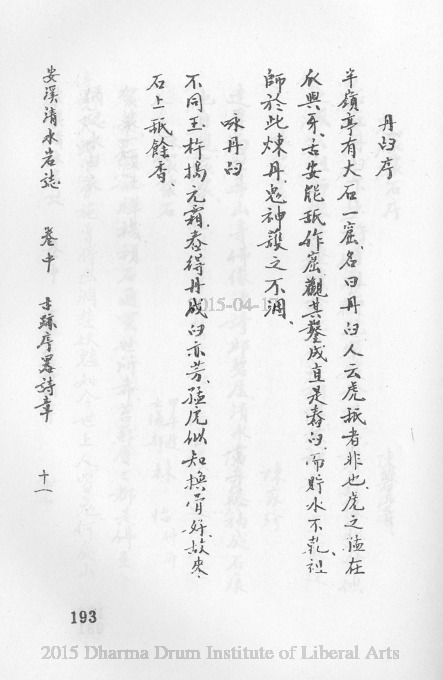 丹臼序
半嶺亭有大石一窟、名曰丹臼人云虎舐者非也、虎之猛在
爪與牙、舌安能舐作窟、觀其鑿成直是舂臼、而貯水不乾、祖
師於此煉丹鬼神護之不涸、
咏丹臼
不同玉杵搗元霜、舂得丹成臼亦芳、猛虎似知換骨好、故來
石上舐餘香、
安溪清水岩誌 卷中 古跡序畧詩章 十一
193
2015-04-1
2015 Dharma Drum Institute of Liberal Arts